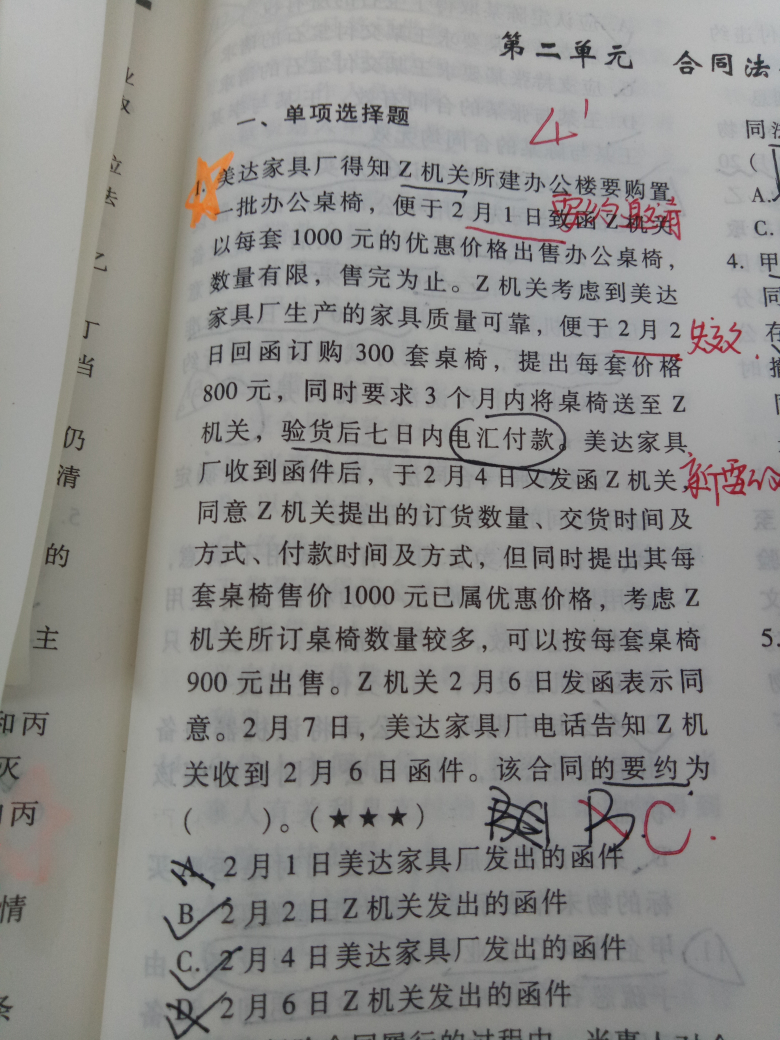 第二单元 合同法
一、单项选择题
4'
1. 美达家具厂得知 Z 机关所建办公楼要购置
一批办公桌椅，便于 2 月 1 日致函 Z 机关
要约邀请
以每套 1000 元的优惠价格出售办公桌椅，
数量有限，售完为止。Z 机关考虑到美达
家具厂生产的家具质量可靠，便于 2 月 2
失效.
日回函订购 300 套桌椅，提出每套价格
800 元，同时要求 3 个月内将桌椅送至 Z
机关，验货后七日内电汇付款。美达家具
厂收到函件后，于 2 月 4 日又发函 Z 机关，
新要约
同意 Z 机关提出的订货数量、交货时间及
方式、付款时间及方式，但同时提出其每
套桌椅售价 1000 元已属优惠价格，考虑 Z
机关所订桌椅数量较多，可以按每套桌椅
900 元出售。Z 机关 2 月 6 日发函表示同
意。2 月 7 日，美达家具厂电话告知 Z 机
关收到 2 月 6 日函件。该合同的要约为
(　　)。(★★★)
B C.
A. 2 月 1 日美达家具厂发出的函件
B. 2 月 2 日 Z 机关发出的函件
C. 2 月 4 日美达家具厂发出的函件
D. 2 月 6 日 Z 机关发出的函件
业
法
乙
丁
当
仍
清
的
主
和丙
灭
丙
情
条
同注
(
A.
C.
4. 甲
同
存
同
5.